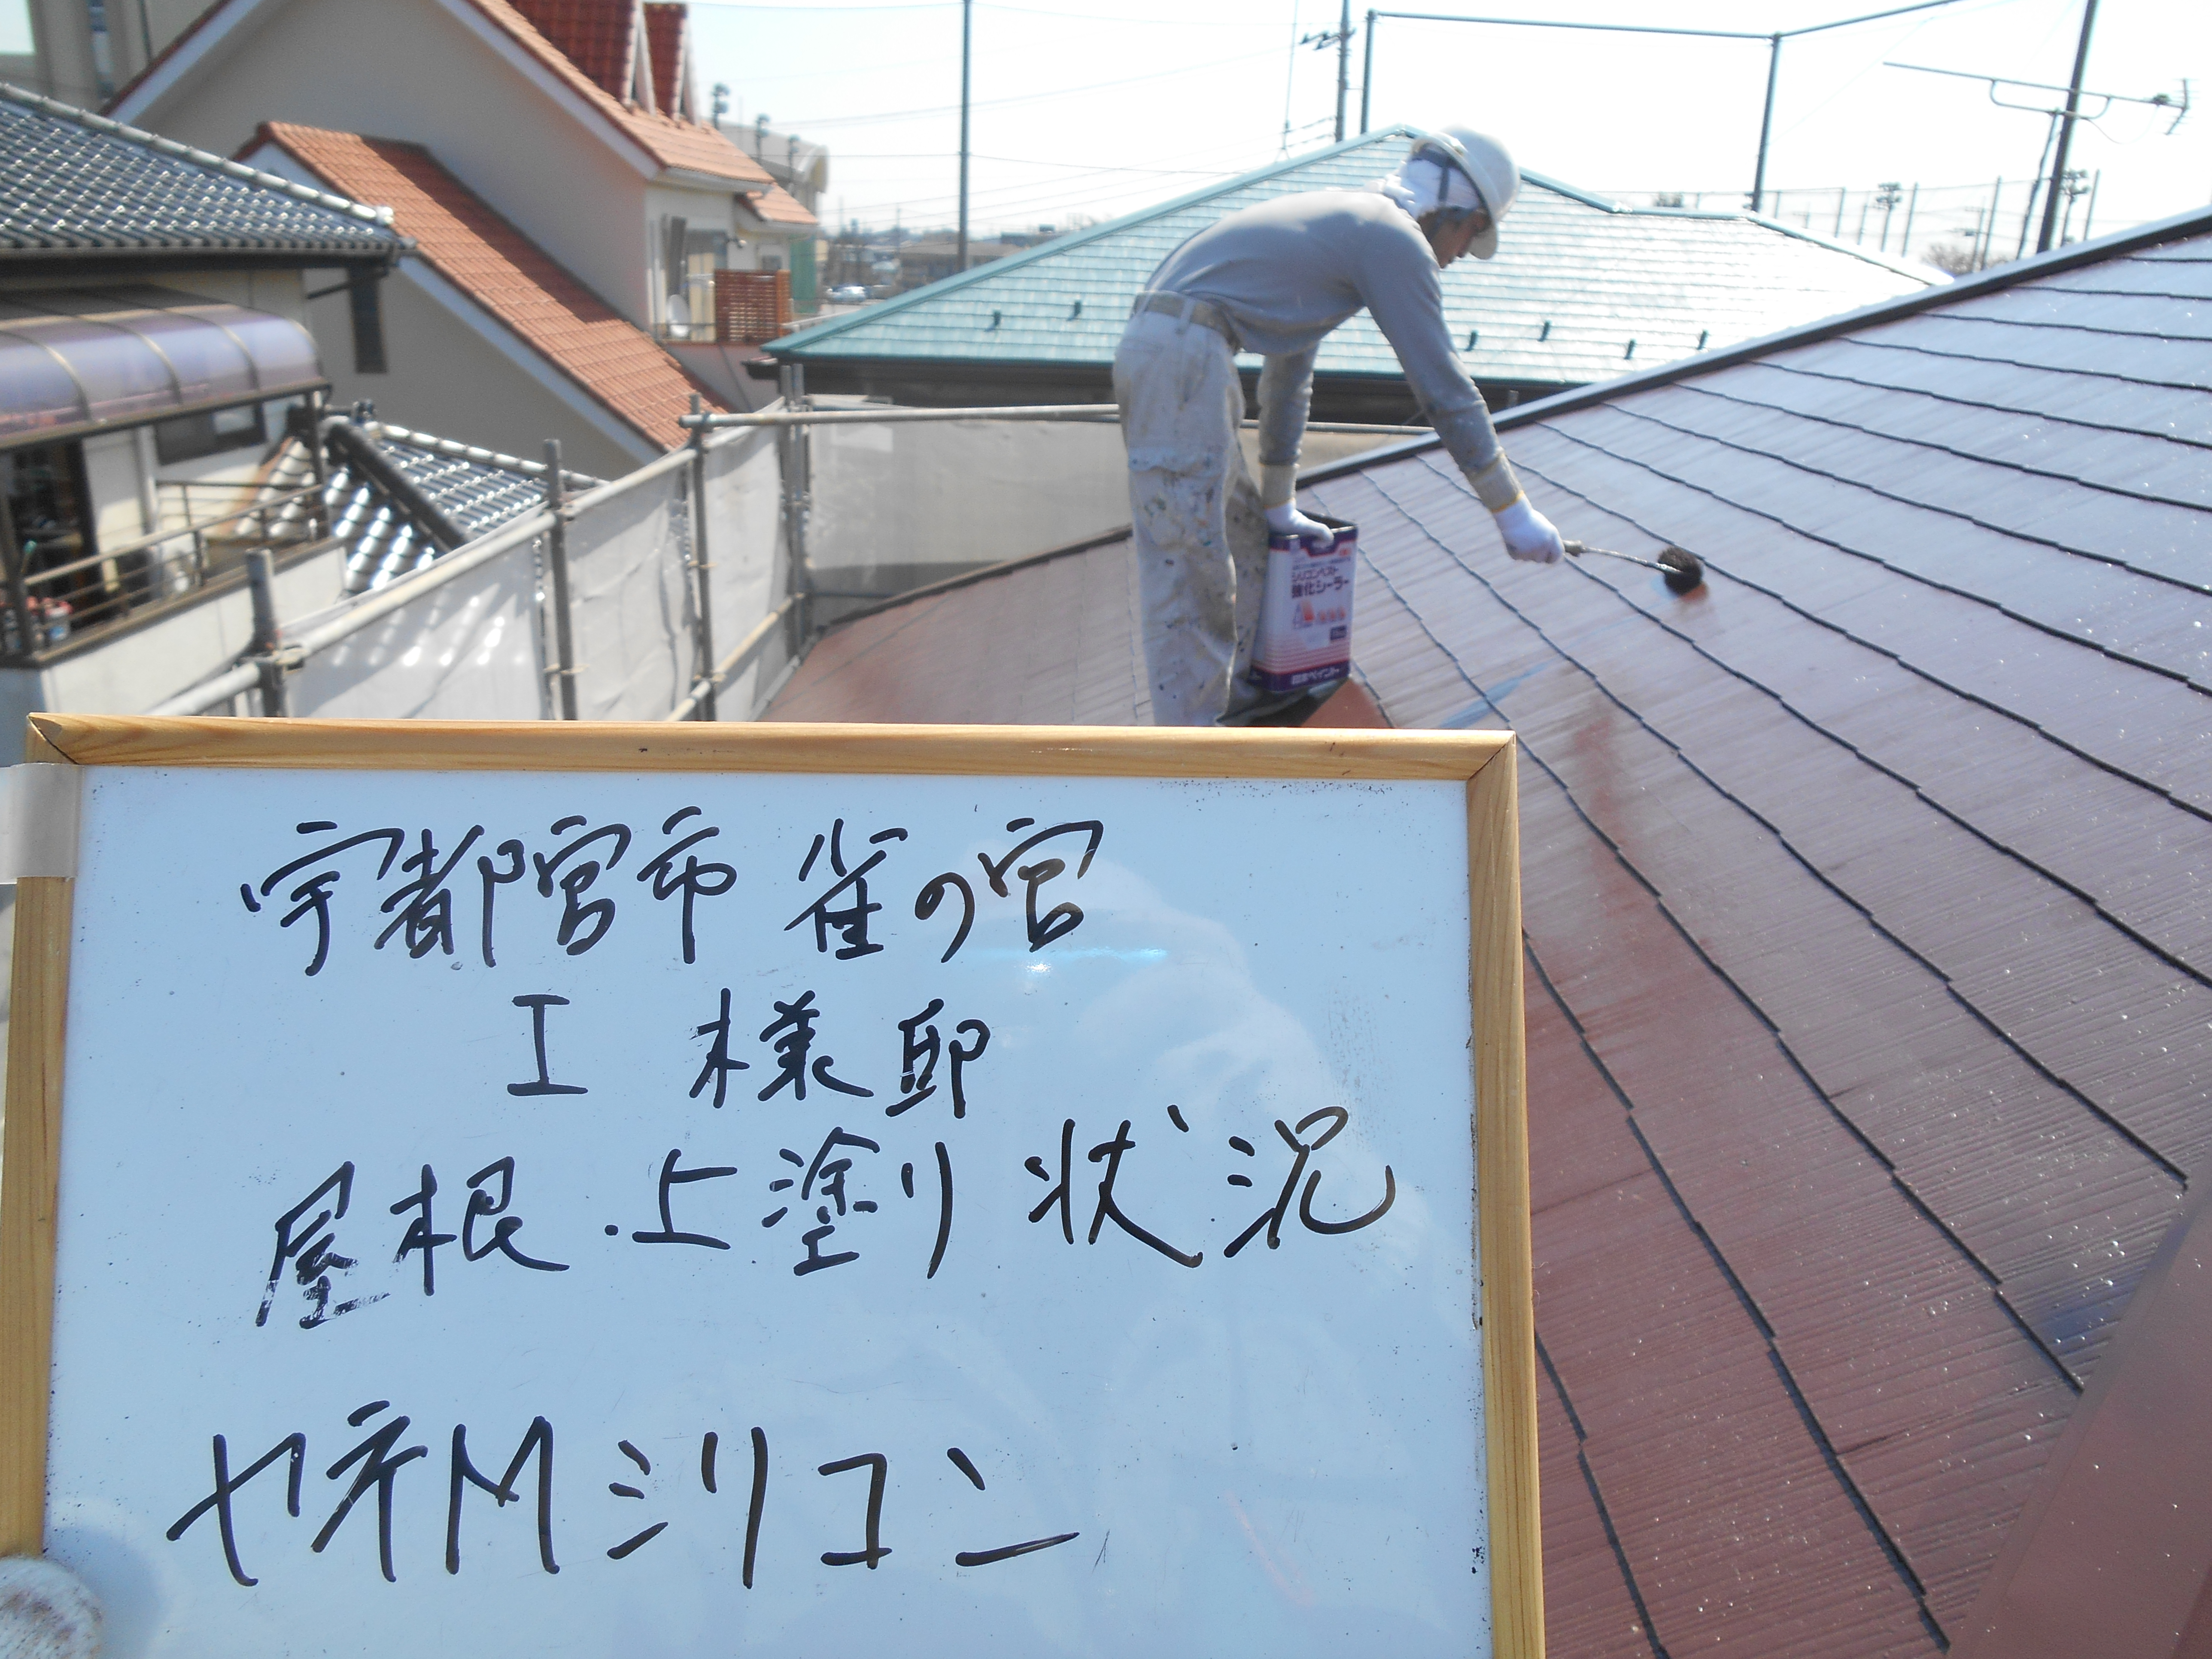 シリコンベスト
強化シーラー
日本ペイント
宇都宮市 雀の宮
I 様邸
屋根 上塗り 状況
ヤネMシリコン